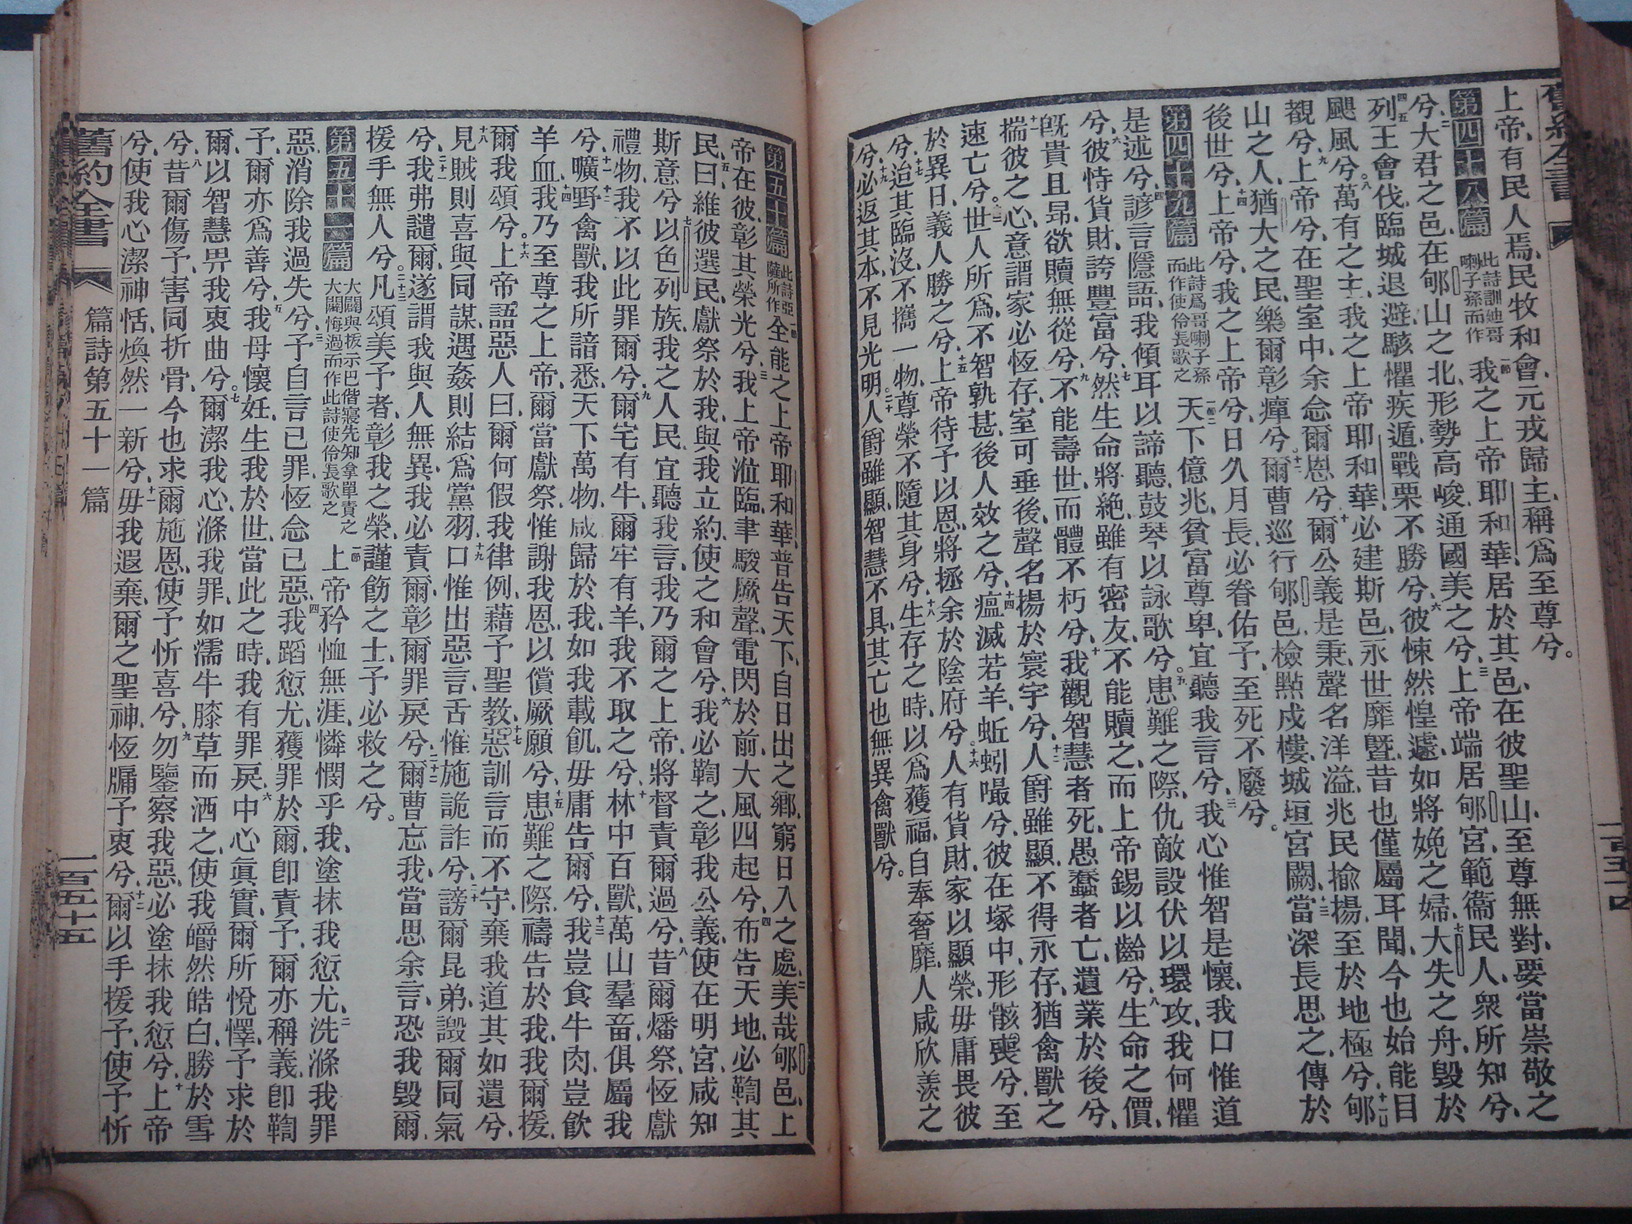 舊約全書
上帝、有民人焉、民牧和會、元戎歸主、稱爲至尊兮。
第四十八篇 此詩訓迪哥喇子孫而作 我之上帝耶和華、居於其邑、在彼聖山、至尊無對、要當崇敬之
兮、大君之邑、在郇山之北、形勢高峻、通國美之兮、上帝端居郇宮、範衞民人、衆所知兮、
列王會伐、臨城退避、駭懼疾遁、戰栗不勝兮、彼悚然惶遽、如將娩之婦、大失之舟、毀於
颶風兮、萬有之主、我之上帝耶和華、必建斯邑、永世靡曁、昔也僅屬耳聞、今也始能目
覩兮、上帝兮、在聖室中、余念爾恩兮、爾公義是秉、聲名洋溢、兆民揄揚、至於地極兮、郇
山之人、猶大之民、樂爾彰癉兮、爾曹巡行郇邑、檢點戍樓、城垣宮闕、當深長思之、傳於
後世兮、上帝兮、我之上帝兮、日久月長、必眷佑予、至死不廢兮。
第四十九篇 此詩爲哥喇子孫而作使伶長歌之 天下億兆、貧富尊卑、宜聽我言兮、我心惟智是懷、我口惟道
是述兮、諺言隱語、我傾耳以諦聽、鼓琴以詠歌兮、患難之際、仇敵設伏以環攻、我何懼
兮、彼恃貨財、誇豐富兮、然生命將絕、雖有密友、不能贖之、而上帝錫以齡兮、生命之價、
旣貴且昂、欲贖無從兮、不能壽世、而體不朽兮、我觀智慧者死、愚蠢者亡、遺業於後兮、
揣彼之心意、謂家必恆存、室可垂後、聲名揚於寰宇兮、人爵雖顯、不得永存、猶禽獸之
速亡兮、世人所爲、不智孰甚、後人效之兮、瘟滅若羊、蚯蚓嘬兮、彼在塚中、形骸喪兮、至
於異日、義人勝之兮、上帝待予以恩、將拯余於陰府兮、人有貨財、家以顯榮、毋庸畏彼
兮、迨其臨沒、不攜一物、尊榮不隨其身兮、生存之時、以爲獲福、自奉奢靡、人咸欣羨之
兮、必返其本、不見光明、人爵雖顯、智慧不具、其亡也無異禽獸兮。
第五十篇 此詩亞薩所作 全能之上帝耶和華、普告天下、自日出之鄉、窮日入之處、美哉郇邑、上
帝在彼、彰其榮光兮、我上帝涖臨聿駿厥聲、電閃於前、大風四起兮、布告天地、必鞫其
民曰、維彼選民、獻祭於我、與我立約、使之和會兮、我必鞫之、彰我公義、使在明宮、咸知
斯意兮、以色列族、我之人民、宜聽我言、我乃爾之上帝、將督責爾過兮、昔爾燔祭、恆獻
禮物、我不以此罪爾兮、爾宅有牛、爾牢有羊、我不取之兮、林中百獸、萬山羣畜、俱屬我
兮、曠野禽獸、我所諳悉、天下萬物、咸歸於我、如我載飢、毋庸告爾兮、我豈食牛肉、豈飲
羊血、我乃至尊之上帝、爾當獻祭、惟謝我恩、以償厥願兮、患難之際、禱告於我、我爾援、
爾我頌兮、上帝語惡人曰、爾何假我律例、藉予聖敎、惡訓言而不守、棄我道其如遺兮、
見賊則喜與同謀、遇姦則結爲黨羽、口惟出惡言、舌惟施詭詐兮、謗爾昆弟、譭爾同氣
兮、我弗譴爾、遂謂我與人無異、我必責爾、彰爾罪戾兮、爾曹忘我、當思余言、恐我毀爾、
援手無人兮、凡頌美予者、彰我之榮、謹飭之士、予必救之兮。
第五十一篇 大闢與拔示巴偕寢先知拿單責之大闢悔過而作此詩使伶長歌之 上帝矜恤無涯、憐憫乎我、塗抹我愆尤、洗滌我罪
惡、消除我過失兮、予自言已罪、恆念已惡、我蹈愆尤、獲罪於爾、卽責予、爾亦稱義、卽鞫
予、爾亦爲善兮、我母懷妊、生我於世、當此之時、我有罪戾、中心眞實、爾所悅懌、予求於
爾、以智慧畀我衷曲兮、爾潔我心、滌我罪、如濡牛膝草而洒之、使我皭然皓白、勝於雪
兮、昔爾傷予、害同折骨、今也求爾施恩、使予忻喜兮、勿鑒察我惡、必塗抹我愆兮、上帝
兮、使我心潔神恬、煥然一新兮、毋我遐棄、爾之聖神、恆牖予衷兮、爾以手援予、使予忻
舊約全書 篇詩第五十一篇 一百五十五